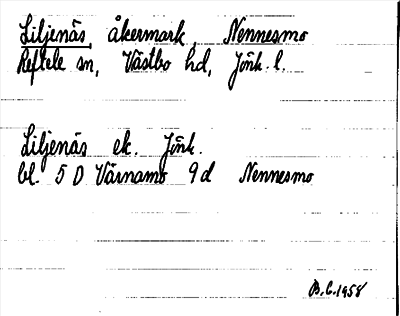 Liljenäs, åkermark, Nennesmo
Reftele sn, Västbo hd, Jönk. l.
Liljenäs ek. Jönk.
bl. 5 D Värnamo 9d Nennesmo
B.C. 1958